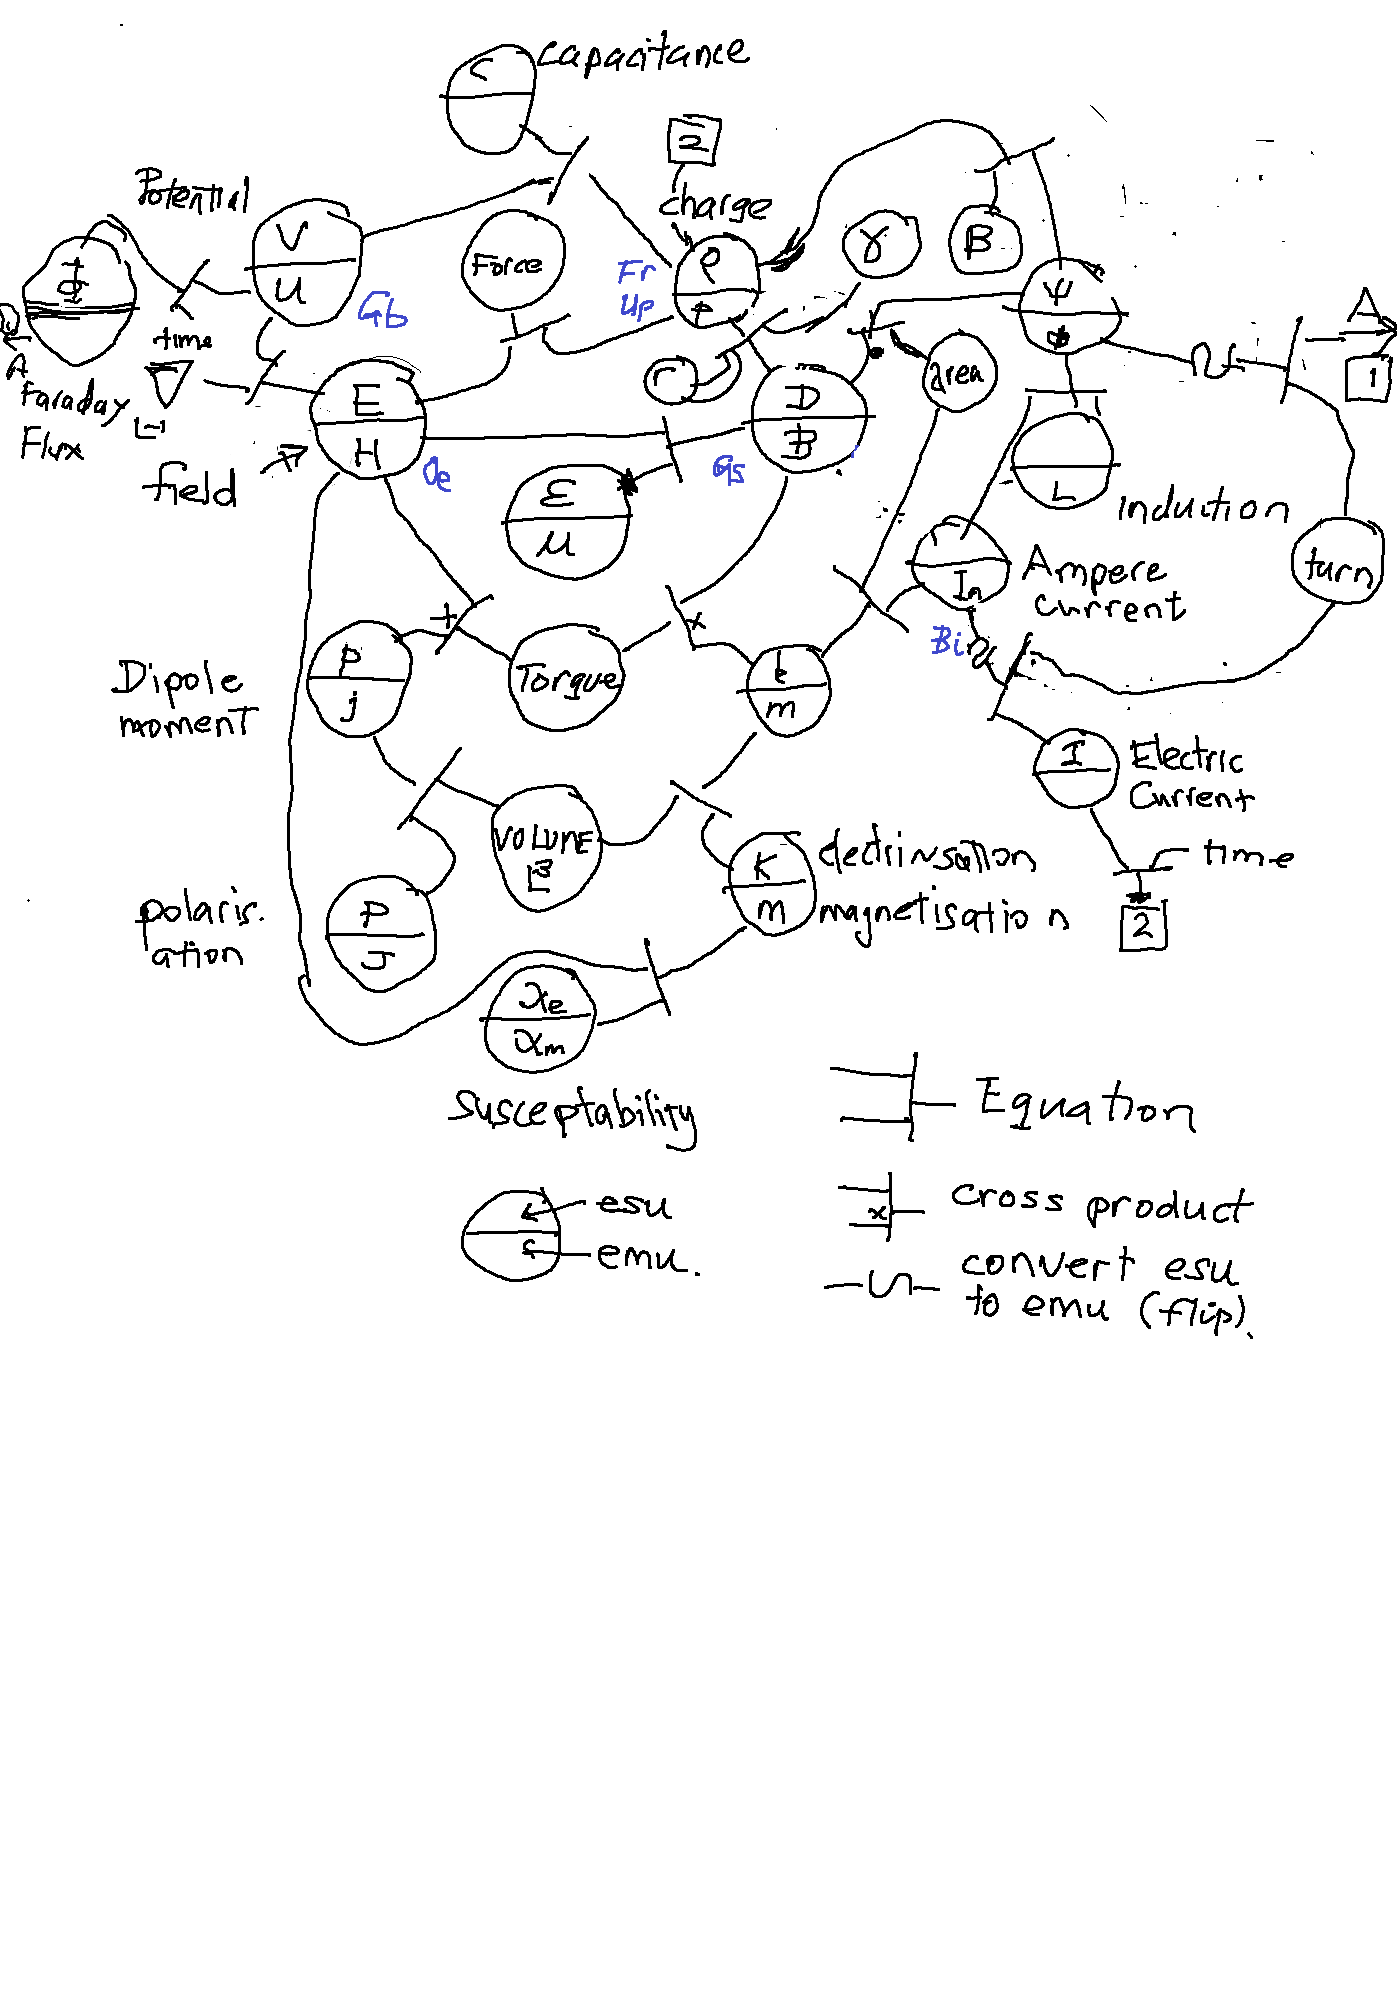 C
capacitance
2
Potential
charge
V
U
Gb
Force
Fr
Up
ρ
p
γ
B
Ψ
Φ
A
1
time
A
Faraday
Flux
∇
L-1
field
E
H
Oe
r
D
B
Gs
area
ε
μ
L
induction
In
Ampere
current
Bi
turn
Dipole
moment
P
j
Torque
k
m
I
Electric
Current
time
2
VOLUME
L3
K
m
magnetisation
polaris.
ation
P
J
χe
χm
susceptability
Equation
x
cross product
esu
emu.
convert esu
to emu (flip).